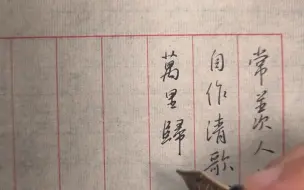 常羨人
自作清歌
萬里歸